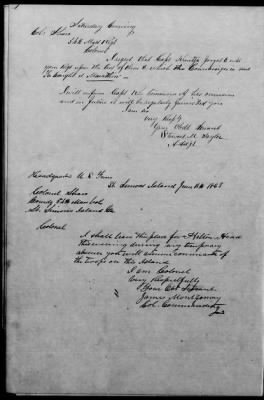 Saturday Evening
Col. Shaw
54th Mass Regt
Colonel
I regret that Capt forgot to
your Regt upon the list of those to which the Countersign is sent
To night it is
I will inform Capt W. his omission of his
and in future it will be regularly furnished you
I am sir
very Resp'y
Your Obdt Servant
Stewart M. Taylor
A.A.A.G.
Headquarters U S Forces
St. Simons Island June 1863
Colonel Shaw
Comdg 54th
St. Simons Island Ga
Colonel
I shall leave this place for Hilton Head
this evening during my temporary
absence you will assume command of
the troops on this Island
I am Colonel
Very Respectfully
Your Obt Servant
James Montgomery
Col. Commanding